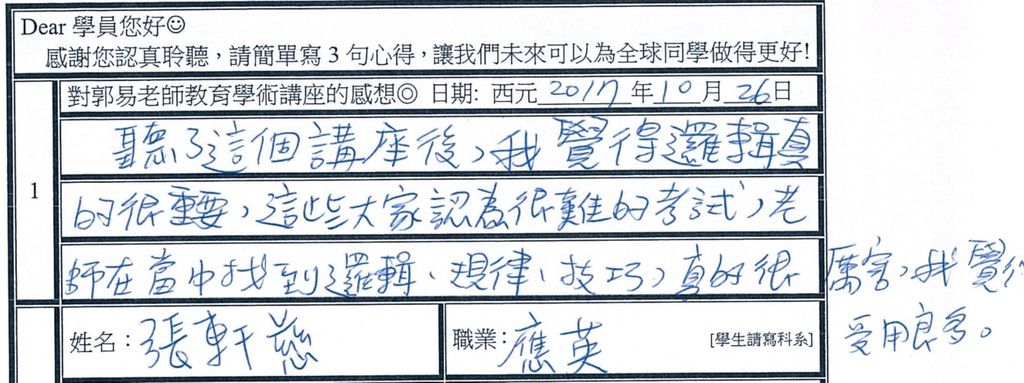 Dear 學員您好☺
感謝您認真聆聽，請簡單寫 3 句心得，讓我們未來可以為全球同學做得更好!
1
對郭易老師教育學術講座的感想◎ 日期: 西元 2017 年 10 月 26 日
聽了這個講座後，我覺得邏輯真
的很重要，這些大家認為很難的考試，老
師在當中找到邏輯、規律、技巧，真的很
厲害，我覺得
受用良多。
姓名：張軒慈
職業：應英 [學生請寫科系]